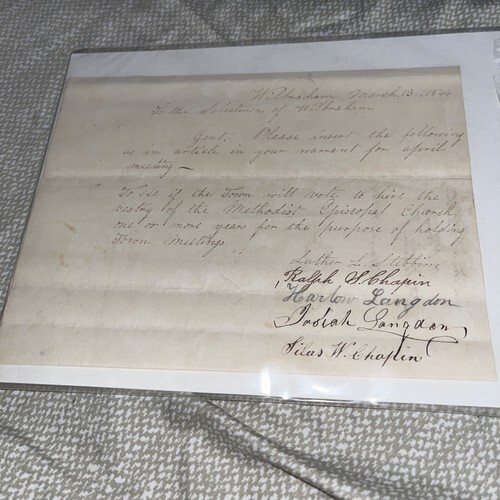 Wilbraham March 13, 1844
To the Selectmen of Wilbraham
Gent. Please insert the following
as an article in your warrant for april
meeting—
To see if the Town will vote to hire the
vestry of the Methodist Episcopal Church
one or more years for the purpose of holding
Town Meetings
Luther L. Stebbins
Ralph S Chapin
Harlow Langdon
Josiah Langdon,
Silas W. Chapin